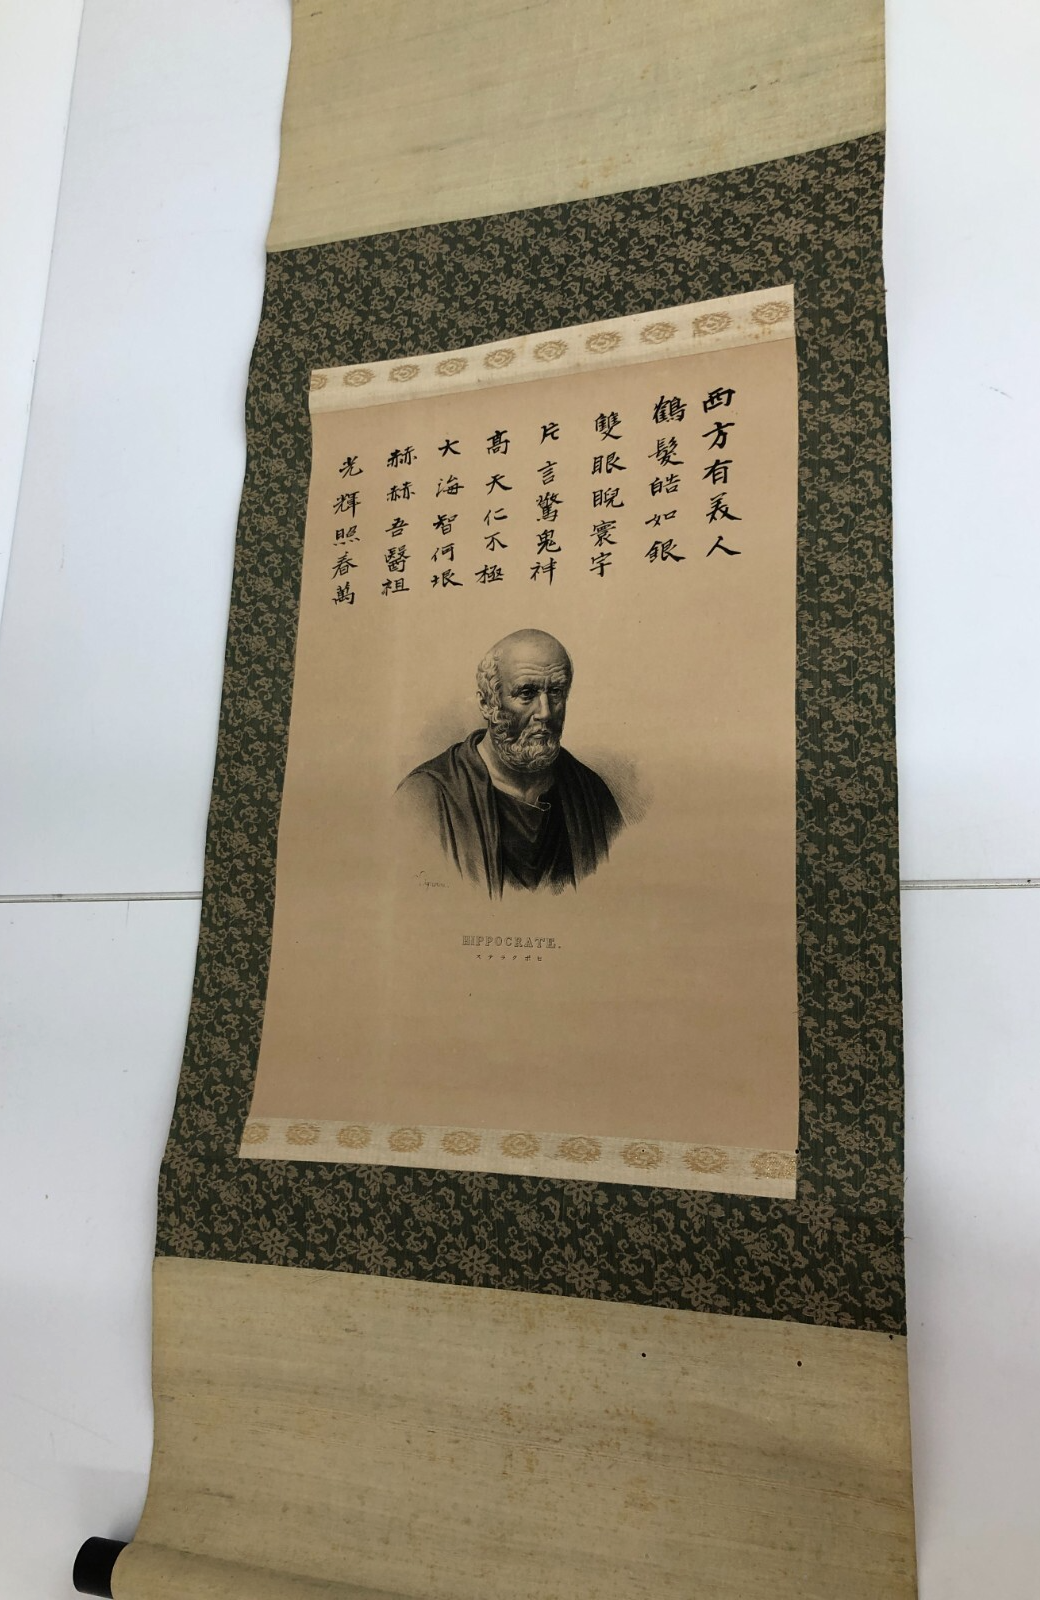 西方有美人
鶴髮皓如銀
雙眼睨寰宇
片言驚鬼神
高天仁不極
大海智何垠
赫赫吾醫祖
光輝照春萬
HIPPOCRATE.
ヒポクラテス